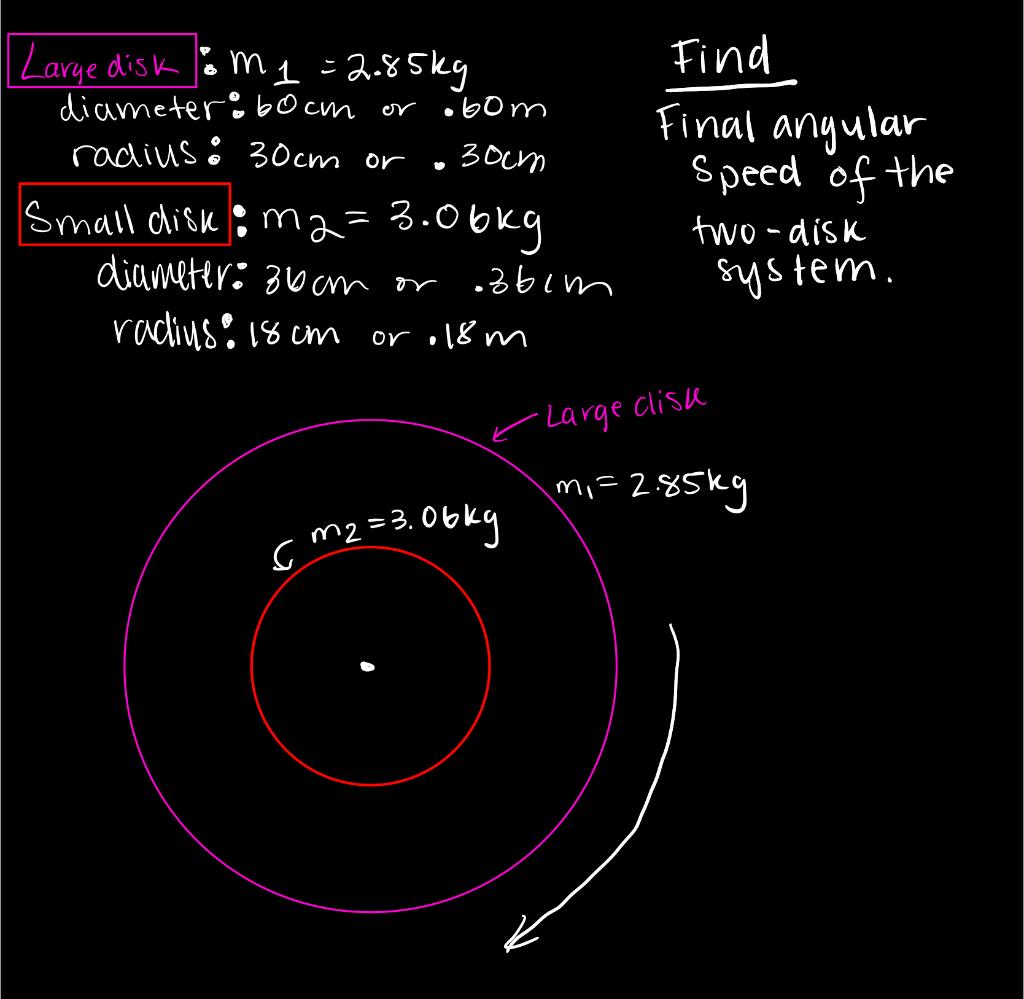 Large disk : m1 = 2.85kg
diameter: 60cm or .60m
radius: 30cm or .30cm
Small disk : m2 = 3.06kg
diameter: 36cm or .36cm
radius: 18cm or .18m
Find
Final angular
speed of the
two-disk
system.
Large disk
m1 = 2.85kg
m2 = 3.06kg